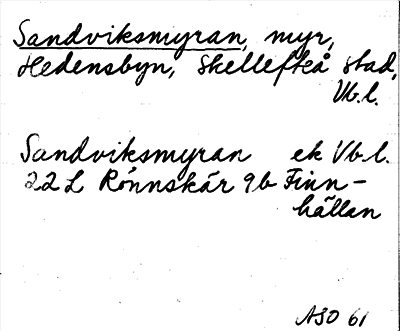 Sandviksmyran, myr,
Hedensbyn, Skellefteå stad,
Vb.l.
Sandviksmyran ek Vb.l.
22 L Rönnskär 9b Finn-
hällan
ASO 61